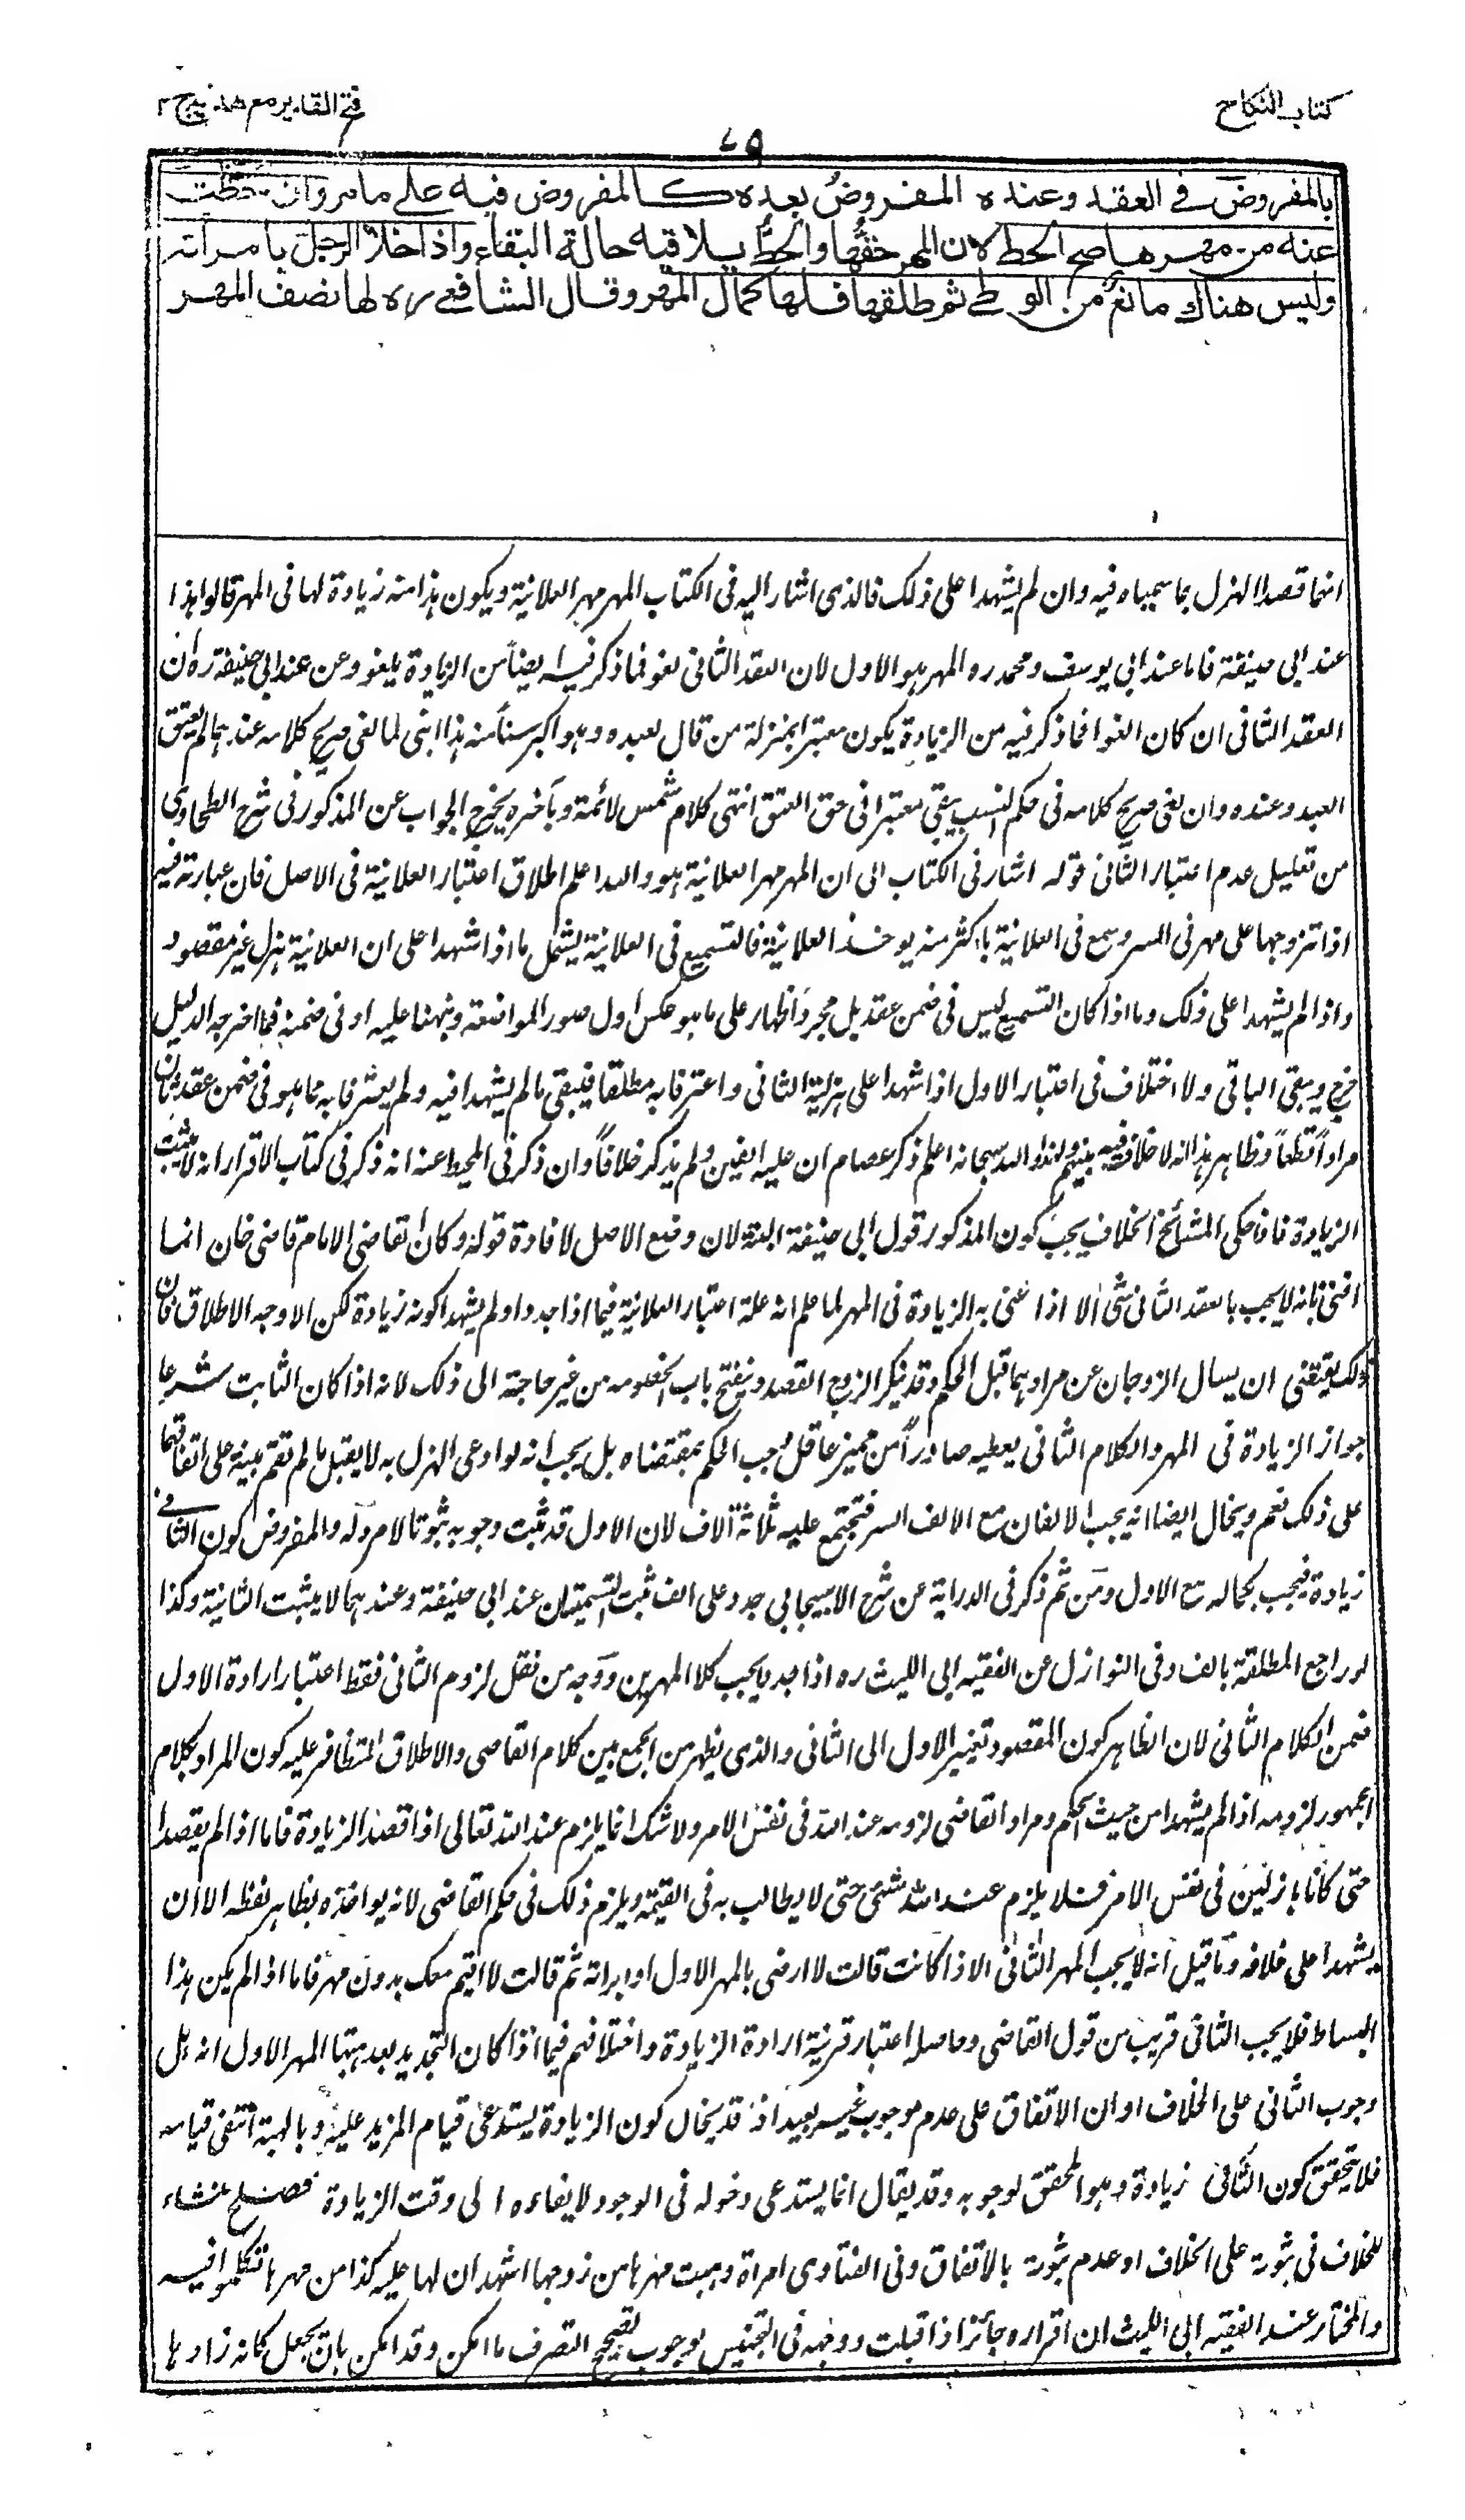 كتاب النكاح
فتح القدير مع هدايه ج ٢
٤٥
بالمفروض في العقد وعنده المفروض بعده كالمفروض فيه على ما مر وان حطت
عنه من مهرها صح الحط لان المهر حقها والحط يلاقيه حالة البقاء واذا خلا الرجل بامرأته
وليس هناك مانع من الوطى ثم طلقها فلها كمال المهر وقال الشافعى ره لها نصف المهر
انما قصدا الهزل بما سمياه فيه وان لم يشهدا على ذلك فالذى اشار اليه فى الكتاب المهر مهر العلانية ويكون هذا منه زيادة لها فى المهر قالوا هذا
عند ابى حنيفة فاما عند ابى يوسف ومحمد ره المهر هو الاول لان العقد الثانى لغو فما ذكر فيه ايضاً من الزيادة يلغو وعن عند ابى حنيفة ره ان
العقد الثانى ان كان لغوا فما ذكر فيه من الزيادة يكون معتبرا بمنزلة من قال لعبده وهو اكبر سناً منه هذا ابنى لما لغى صريح كلامه عندهما لم يعتق
العبد وعنده وان لغى صريح كلامه فى حكم النسب يبقى معتبرا فى حق العتق انتهى كلام شمس الائمة وبآخره يخرج الجواب عن المذكور فى شرح الطحاوى
من تعليل عدم اعتبار الثانى قوله اشار فى الكتاب الى ان المهر مهر العلانية هو والله اعلم اطلاق اعتبار العلانية فى الاصل فان عبارته فيه
اذا تزوجها على مهر فى السر وسمع فى العلانية باكثر منه يوخذ العلانية فالتسميع فى العلانية يشمل ما اذا شهدا على ان العلانية هزل غير مقصود
واذا لم يشهدا على ذلك وما اذا كان التسميع ليس فى ضمن عقد بل مجرد اظهار على ما هو عكس اول صور المواضعة ونبهنا عليه او فى ضمنه فما اخرجه الدليل
خرج ويبقى الباقى ولا اختلاف فى اعتبار الاول اذا شهدا على هزلية الثانى واعترفا به مطلقا فيبقى ما لم يشهدا فيه ولم يعترفا به مما هو فى ضمن عقد ثان
مراداً قطعاً وظاهر هذا انه لا خلاف فيه بينهم ولهذا والله سبحانه اعلم ذكر عصام ان عليه الفين ولم يذكر خلافاً وان ذكر فى المحيط عنه انه ذكر فى كتاب الاقرار انه لا يثبت
الزيادة فاذا حكى المشائخ الخلاف يجب كون المذكور قول ابى حنيفة البتة لان وضع الاصل لافادة قوله وكان القاضى الامام قاضى خان انما
افتى بانه لا يجب بالعقد الثانى شئ الا اذا عنى به الزيادة فى المهر لما علم انه علة اعتبار العلانية فيما اذا جددا ولم يشهدا كونه زيادة لكن الاوجه الاطلاق فان
ذلك يقتضى ان يسال الزوجان عن مرادهما قبل الحكم وقد ينكر الزوج القصد ويفتح باب الخصومه من غير حاجة الى ذلك لانه اذا كان الثابت شرعا
جواز الزيادة فى المهر والكلام الثانى يعطيه صادراً من مميز عاقل وجب الحكم بمقتضاه بل يجب انه لو ادعى الهزل به لا يقبل ما لم تقم بينة على اتفاقهما
على ذلك نعم ويخال ايضا انه يجب الالفان مع الالف السر فتجتمع عليه ثلاثة آلاف لان الاول قد ثبت وجوبه ثبوتا لا مرد له والمفروض كون الثانى
زيادة فيجب بكماله مع الاول ومن ثم ذكر فى الدراية عن شرح الاسبيجابى جدد على الف ثبت التسميتان عند ابى حنيفة وعندهما لا يثبت الثانية وكذا
لو راجع المطلقة بالف وفى النوازل عن الفقيه ابى الليث ره اذا جدد يجب كلا المهرين ووجه من نقل لزوم الثانى فقط اعتبار ارادة الاول
ضمن الكلام الثانى لان الظاهر كون المقصود تغيير الاول الى الثانى والذى يظهر من الجمع بين كلام القاضى والاطلاق المتظافر عليه كون المراد بكلام
الجمهور لزومه اذا لم يشهدا من حيث الحكم ومراد القاضى لزومه عند الله فى نفس الامر ولا شك انما يلزم عند الله تعالى اذا قصدا الزيادة فاما اذا لم يقصدا
حتى كانا هازلين فى نفس الامر فلا يلزم عند الله شئ حتى لا يطالب به فى القيمة ويلزم ذلك فى حكم القاضى لانه يواخذه بظاهر لفظه الا ان
يشهدا على خلافه وما قيل انه لا يجب المهر الثانى الا اذا كانت قالت لا ارضى بالمهر الاول او ابرأته ثم قالت لا اقيم معك بدون مهر فاما اذا لم يكن هذا
البساط فلا يجب الثانى قريب من قول القاضى وحاصله اعتبار قرينة ارادة الزيادة واختلافهم فيما اذا كان التجديد بعد هبتها المهر الاول انه بل
وجوب الثانى على الخلاف او ان الاتفاق على عدم وجوب غير بعيد اذ قد يخال كون الزيادة يستدعى قيام المزيد عليه وبالهبة انتفى قيامه
فلا يتحقق كون الثانى زيادة وهو المحقق لوجوبه وقد يقال انما يستدعى دخوله فى الوجود لا بقاءه الى وقت الزيادة فصلح منشاء
للخلاف فى ثبوته على الخلاف او عدم ثبوته بالاتفاق وفى الفتاوى امراة وهبت مهرها من زوجها اشهد ان لها عليه كذا من مهرها تكلموا فيه
والمختار عند الفقيه ابى الليث ان اقراره جائز اذا قبلت ووجهه فى التجنيس بوجوب تصحيح التصرف ما امكن وقد امكن بان يجعل كانه زادها